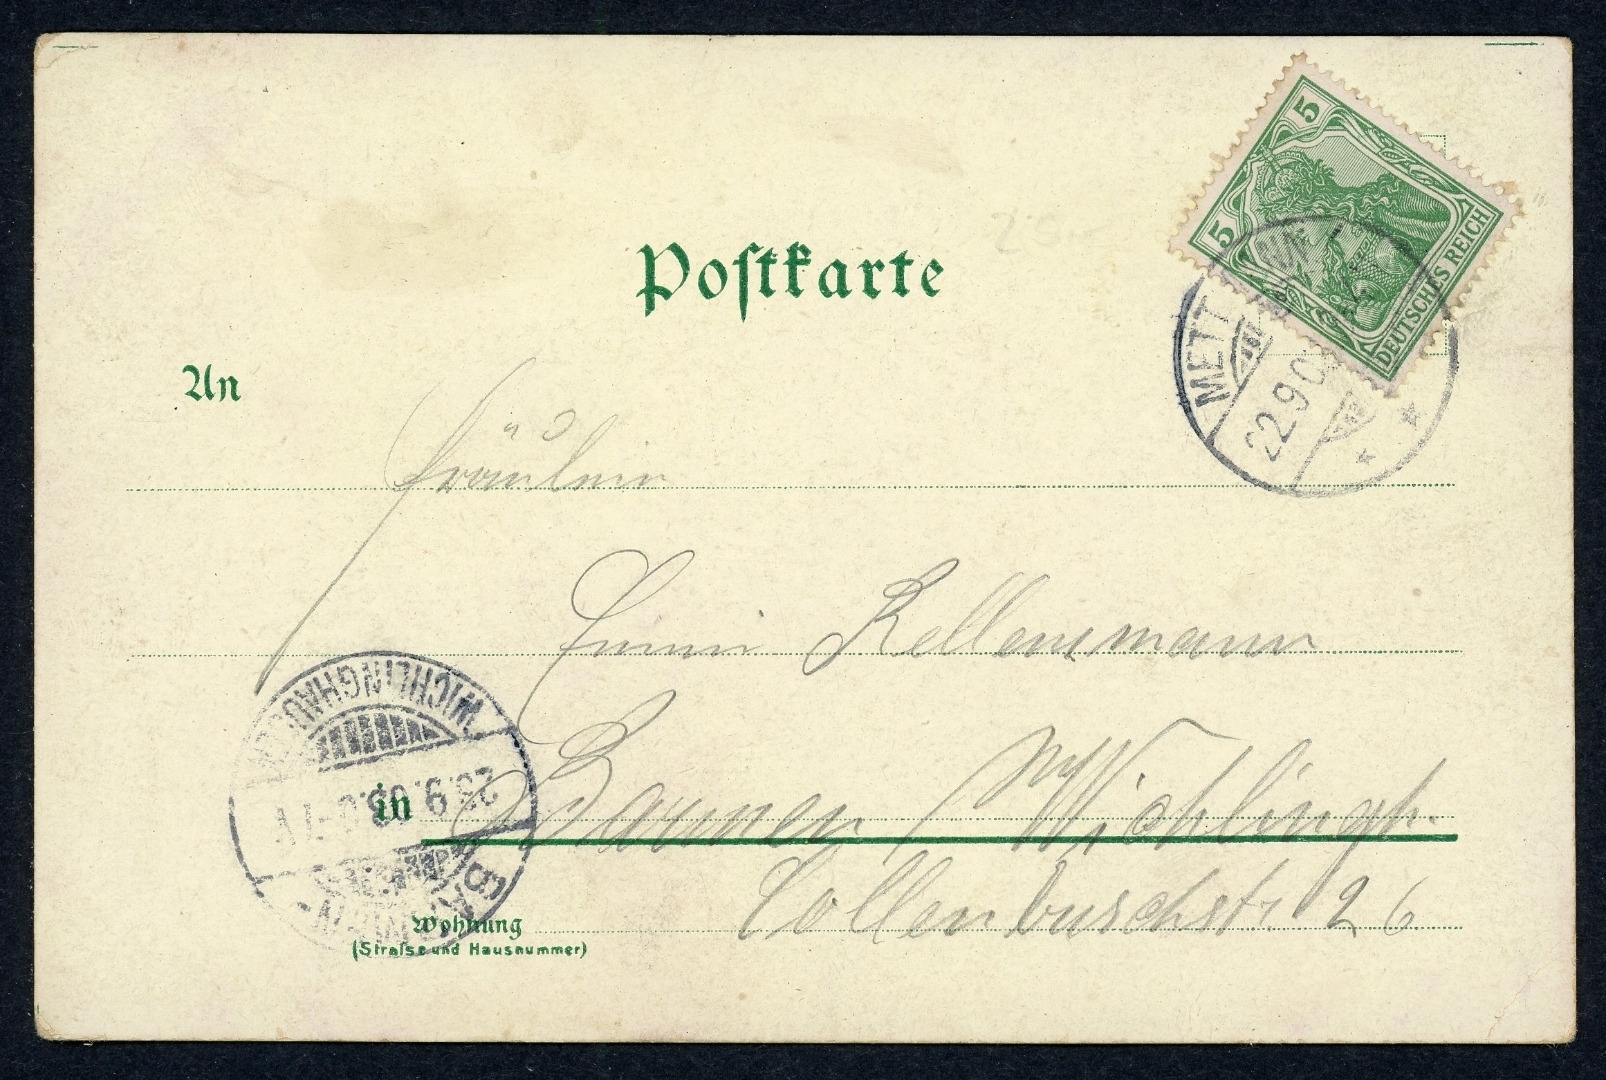 Postkarte
5
5
DEUTSCHES REICH
METT
22.9.0
An
Fräulein
Emmi Kellermann
WICHLINGHAUSEN
23.9.03.
BARMEN-
in Barmen / Wichlingh.
Collenbuschstr. 26.
Wohnung
(Strasse und Hausnummer)